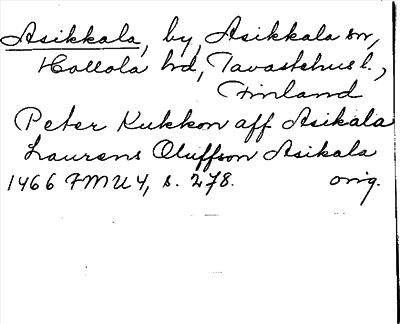 Asikkala, by, Asikkala sn,
Hollola hd, Tavastehus l.,
Finland
Peter Kukkon aff Asikala
Laurens Oluffson Asikala
1466 FMU 4, s. 278. orig.